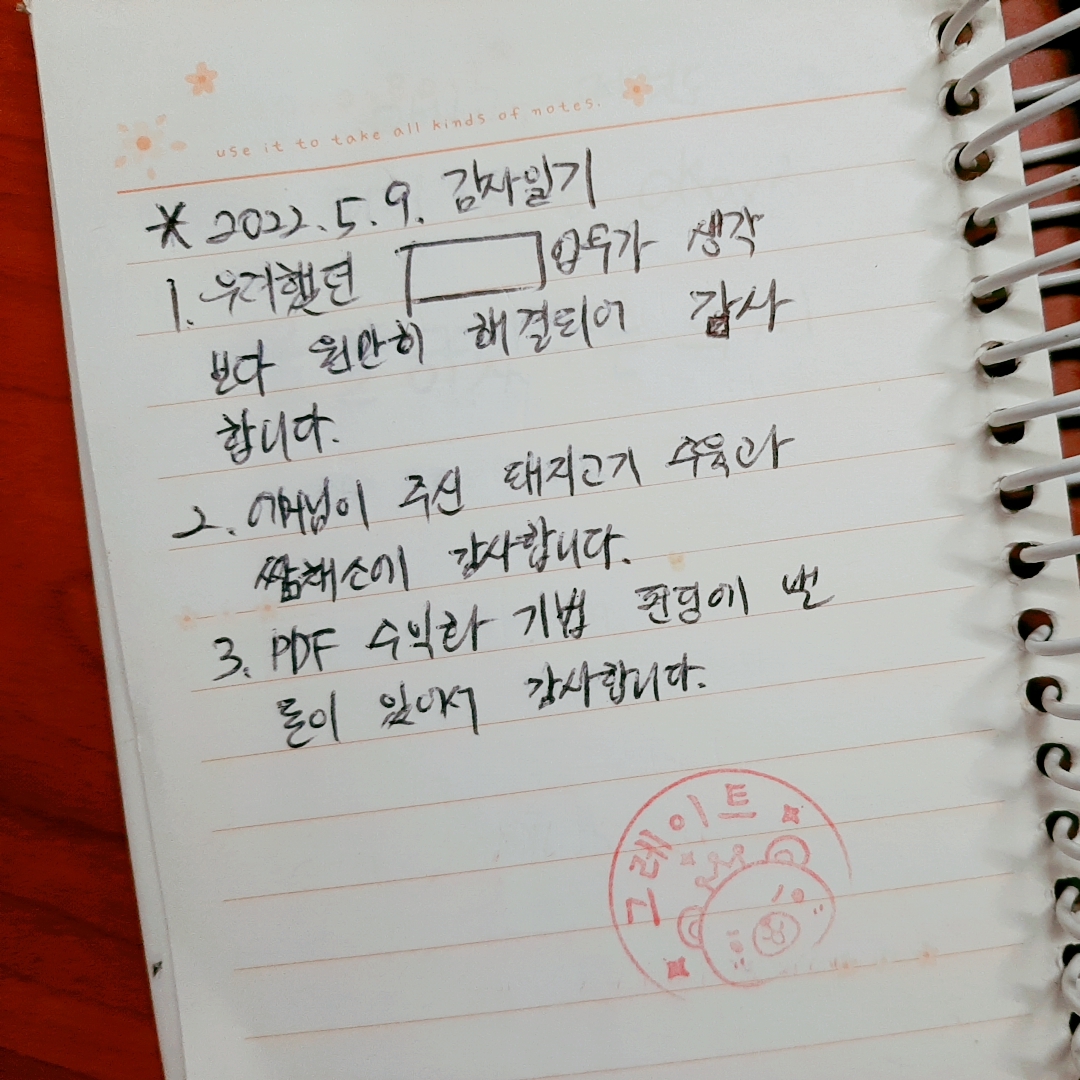 use it to take all kinds of notes.
* 2022.5.9. 감사일기
1. 우려했던 업무가 생각
보다 원만히 해결되어 감사
합니다.
2. 어머님이 주신 돼지고기 수육과
쌈채소에 감사합니다.
3. PDF 수익화 기법 펀딩에 번
돈이 있어서 감사합니다.
그레이트